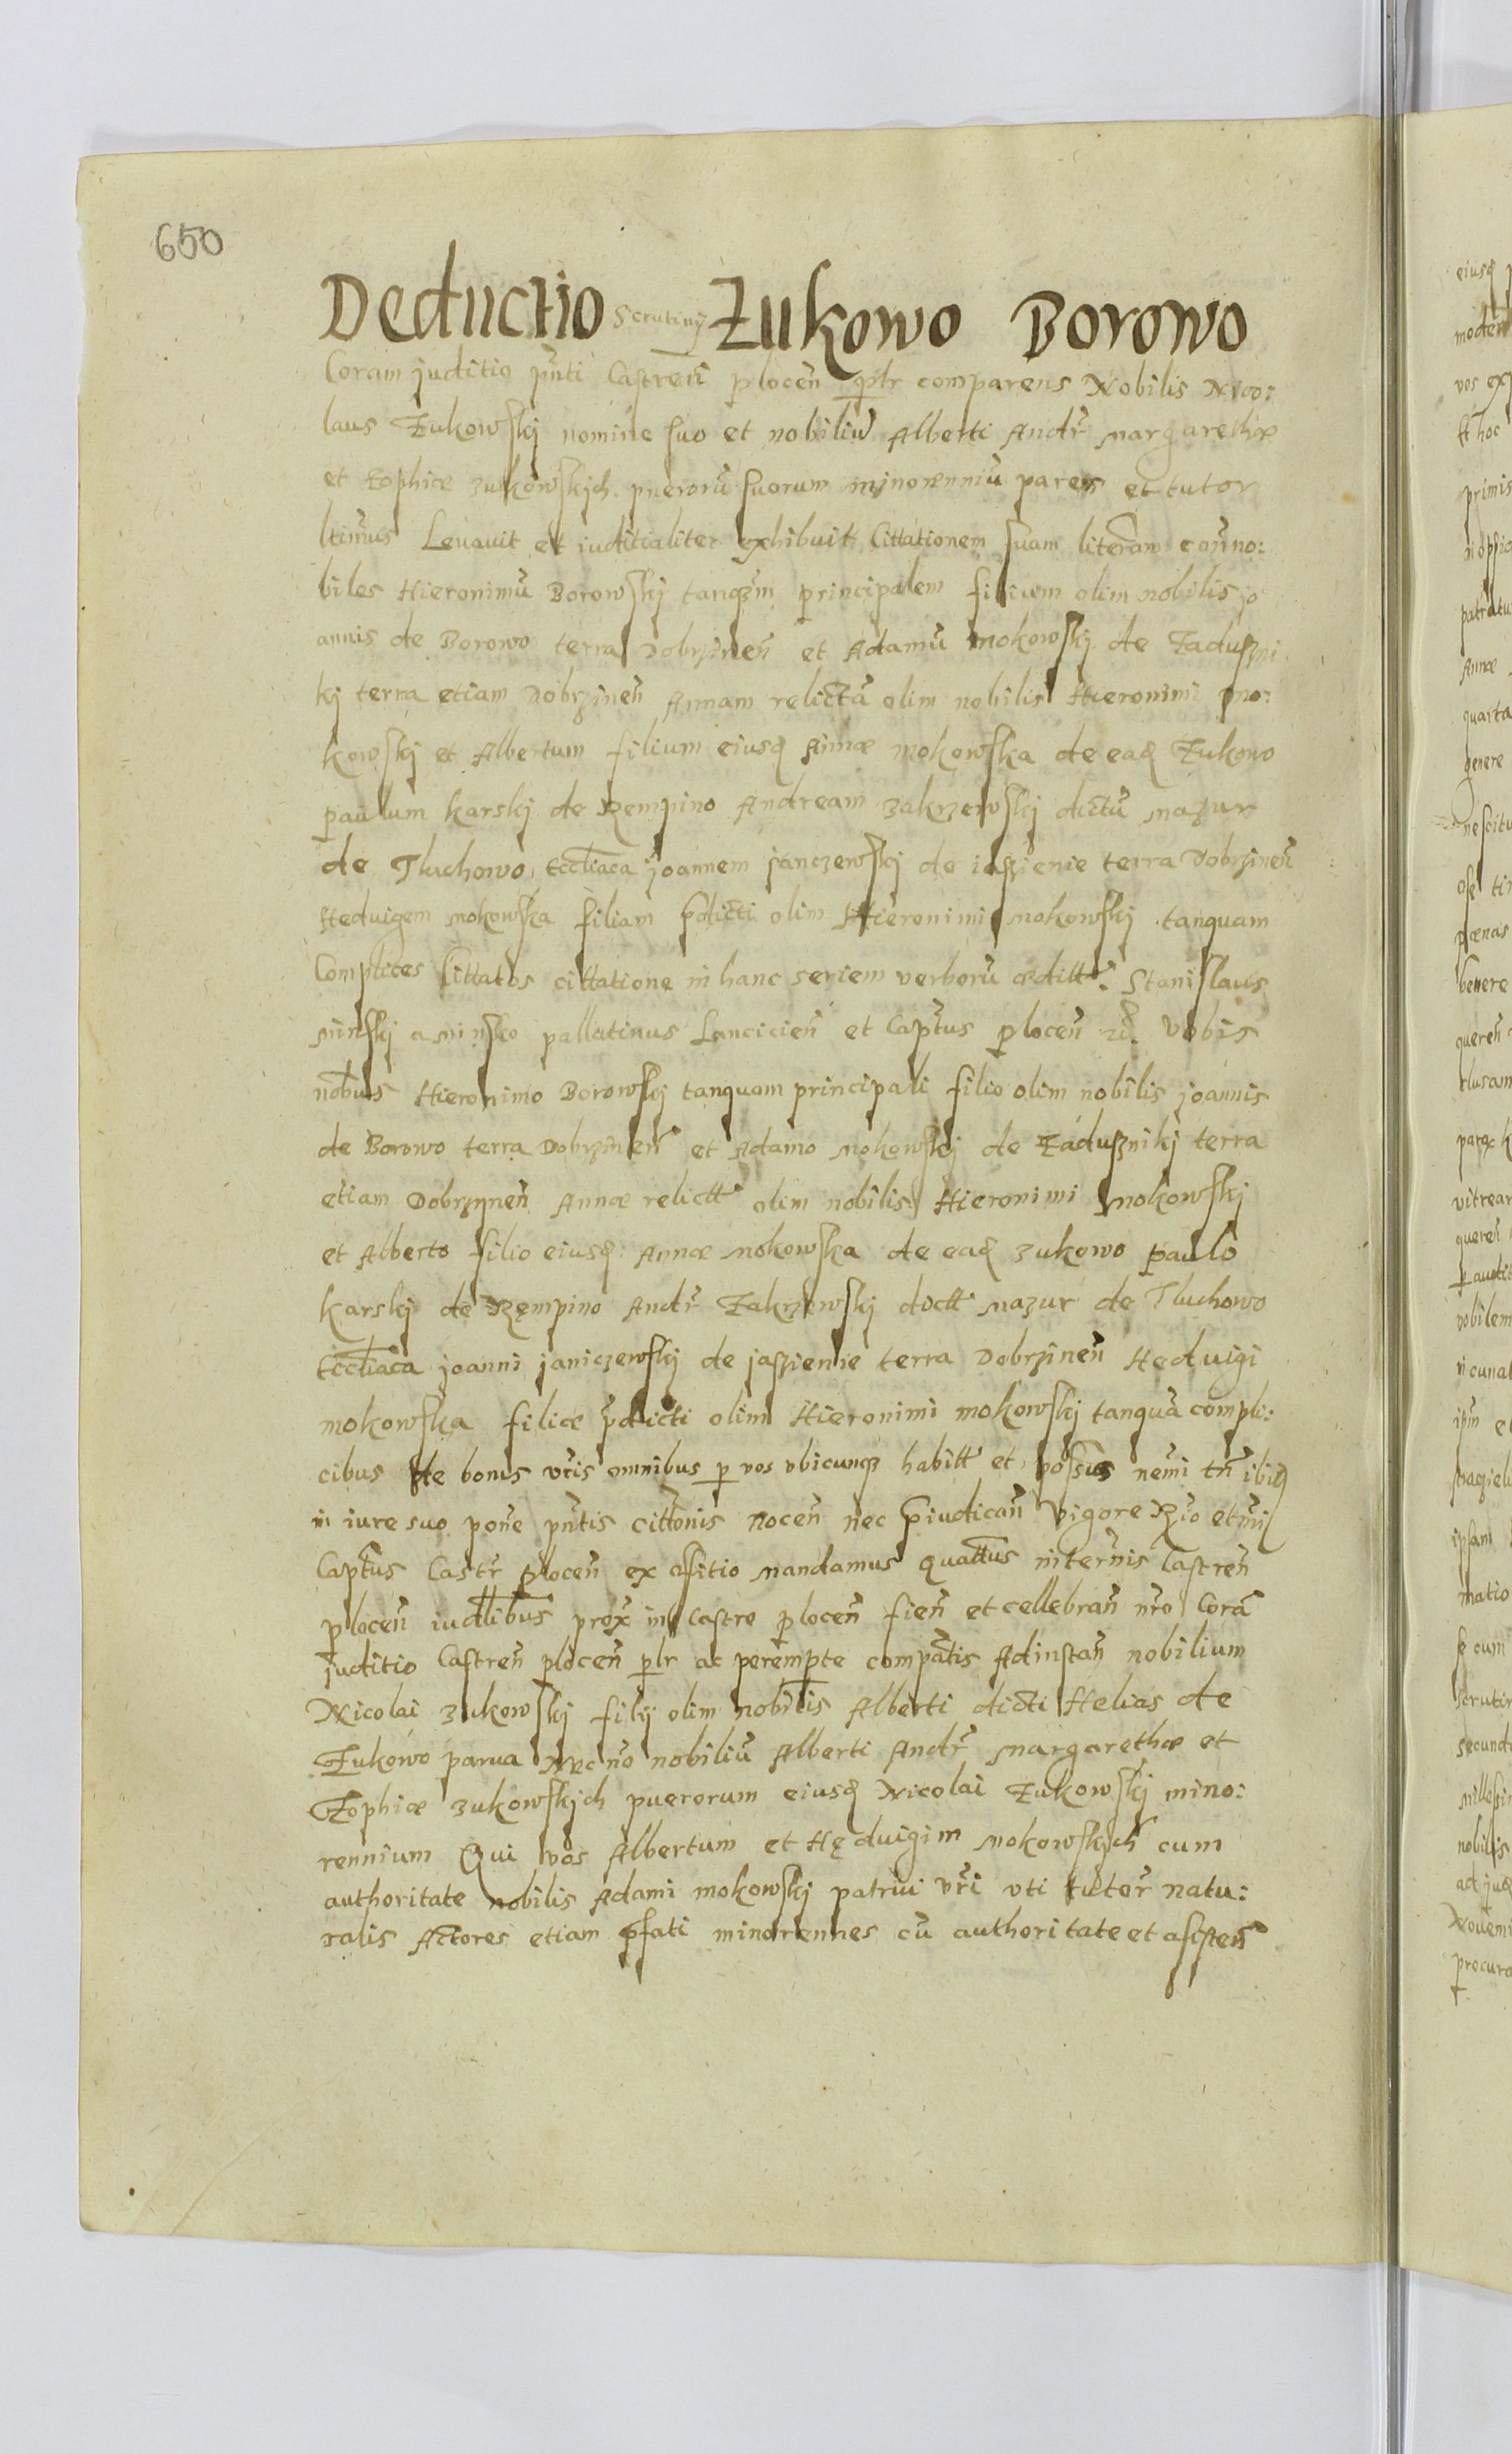 650
Deductio Scrutinij Zukowo Borowo
Coram juditio pñti Castreñ plocen̄ plr comparens Nobilis Nico:
laus Zukowskj nomine suo et nobiliū Alberti Andr̄ Margarethæ
et Zophiæ Zukowskich pueroru suorum minorenniu parens et tutor
Ltimus Levavit et iuditialiter exhibuit Cittationem suam literam con̄ no:
biles Hieronimū Borowskj tanqȝm principalem filium olim nobilis jo
annis de Borowo terra Dobrzinen̄ et Adamū Mokowskj de Zaduszni
kj terra etiam Dobrzinen̄ Annam relictā olim nobilis Hieronimi Mo:
kowskj et Albertum filium eiusq Annæ Mokowska de eaq Zukowo
paulum Karskj de Rzempino Andream Zakrzewskj dictū Mazur
de Tluchowo Ecctiaca joannem janczewskj de iaszienie terra Dobrzinen̄
Heduigem Mokowska filiam p̄dicti olim Hieronimi Mokowskj tanquam
Complices Cittatos cittatione in hanc seriem verborū æditt: Stanislaus
Minskj a Minsko pallatinus Lancicien̄ et Captus plocen̄ zc̄. Vobis
nobus Hieronimo Borowskj tanquam principali filio olim nobilis joannis
de Borowo terra Dobrzinen̄ et Adamo Mokowskj de Zadusznikj terra
etiam Dobrzynen̄ Annæ relictt olim nobilis Hieronimi Mokowskj
et Alberto filio eiusq: Annæ Mokowska de eaq Zukowo paulo
Karskj de Rzempino Andr̄ Zakrzewskj dictt Mazur de Tluchowo
Ecctiaca joanni janiczewskj de jaszienie terra Dobrzinen̄ Heduigi
Mokowska filiæ p̄dicti olim Hieronimi Mokowskj tanquā compli:
cibus de bonis vr̄is omnibus p vos vbicunqȝ habitt et possus nemi tn̄ ibiq
in iure suo pone pn̄tis citt̄onis nocen̄ nec p̄iudican̄ Vigore Rgio et nri
Captus Castr̄ plocen̄ ex offitio Mandamus quattus in ternis Castren̄
plocen̄ iudlibus prox in Castro plocen̄ fien̄ et cellebran̄ nr̄o Corā
juditio Castren̄ plocen̄ plr ac perempte compatis Ad instan̄ nobilium
Nicolai Zukowskj filij olim nobilis Alberti dicti Helias de
Zukowo parva Nec no nobiliū Alberti Andr̄ Margarethæ et
Zophiæ Zukowskich puerorum eiusq Nicolai Zukowskj mino:
rennium Qui vos Albertum et Hęduigim Mokowskich cum
authoritate nobilis Adami Mokowskj patrui vr̄i vti tutor̄ natu:
ralis Actores etiam p̄fati minorennes cū authoritate et asisten̄